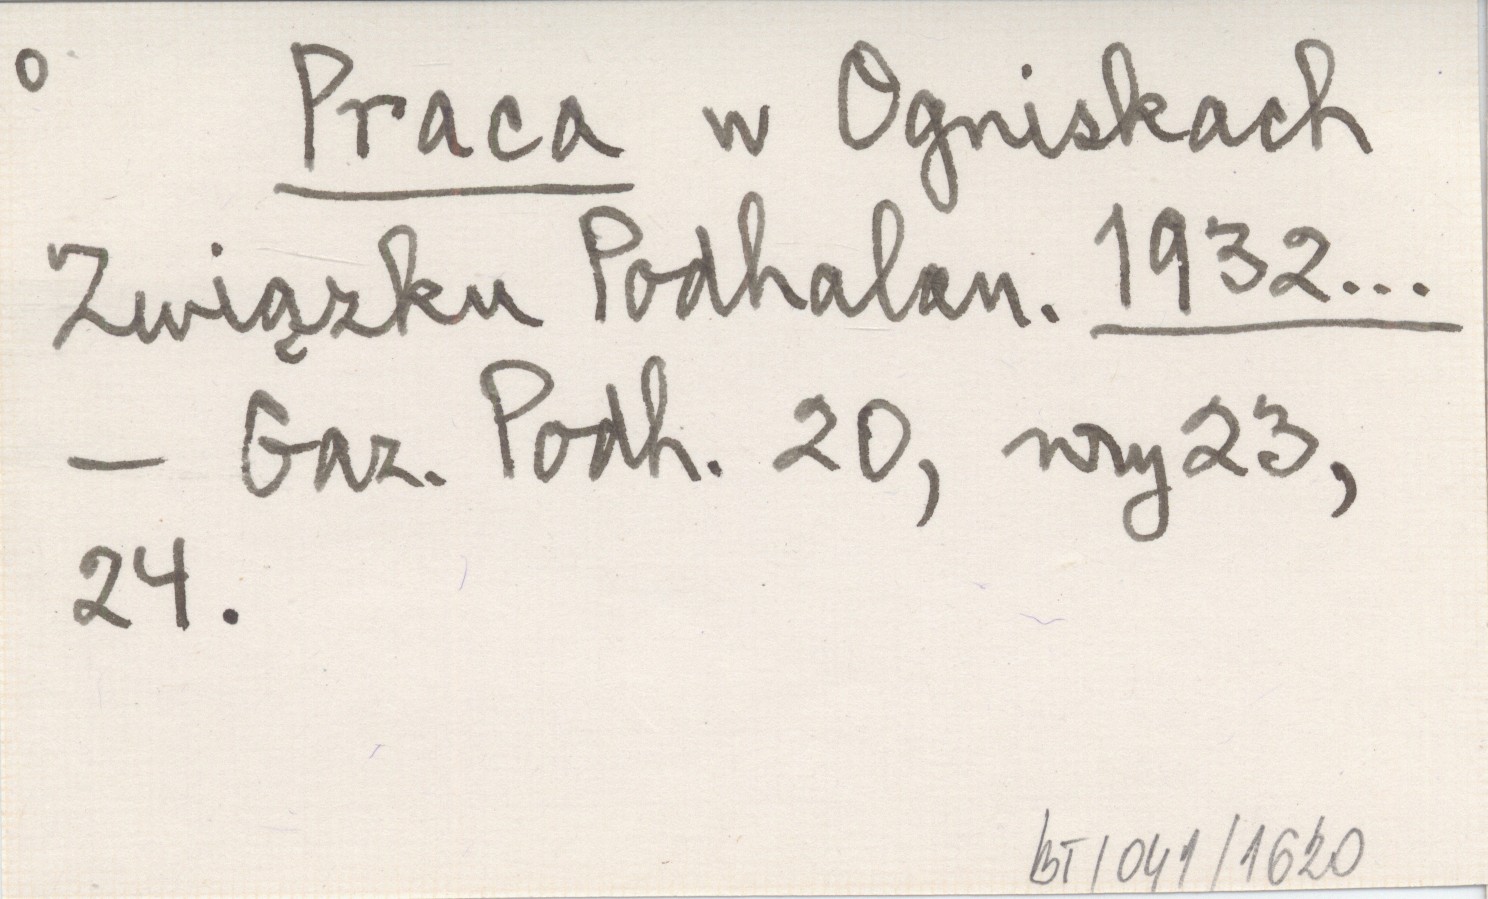 o Praca w Ogniskach
Związku Podhalan. 1932...
— Gaz. Podh. 20, nry 23,
24.
BT/041/1620